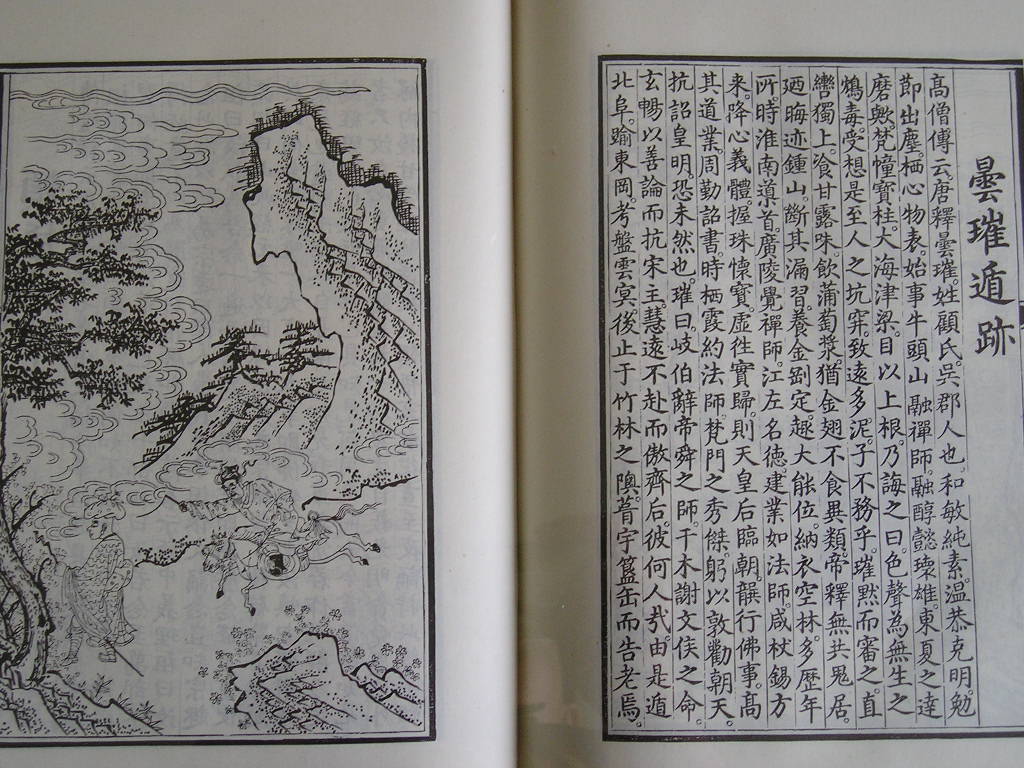 曇璀遁跡
高僧傳云唐釋曇璀。姓顧氏。吳郡人也。和敏純素。溫恭克明。勉
節出塵。栖心物表。始事牛頭山融禪師。融醇懿瓌雄。東夏之達
磨歟。梵幢寶柱。大海津梁。目以上根。乃誨之曰。色聲為無生之
鴆毒。受想是至人之坑穽。致遠多泥。子不務乎。璀默而審之。直
轡獨上。飡甘露味。飲蒲萄漿。猶金翅不食異類。帝釋無共鬼居。
迺晦迹鍾山。斷其漏習。養金剛定。趣大能位。納衣空林。多歷年
所。時淮南導首。廣陵覺禪師。江左名德。建業如法師。咸杖錫方
來。降心義體。握珠懷寶。虛往實歸。則天皇后臨朝。韻行佛事。高
其道業。周勤詔書。時栖霞約法師。梵門之秀傑。躬以敦勸朝天。
抗詔皇明。恐未然也。璀曰。岐伯辭帝舜之師。干木謝文侯之命。
玄暢以善論而抗宋主。慧遠不赴而傲齊后。彼何人哉。由是遁
北阜。踰東岡。考盤雲冥。後止于竹林之隩。葺宇簋缶而告老焉。